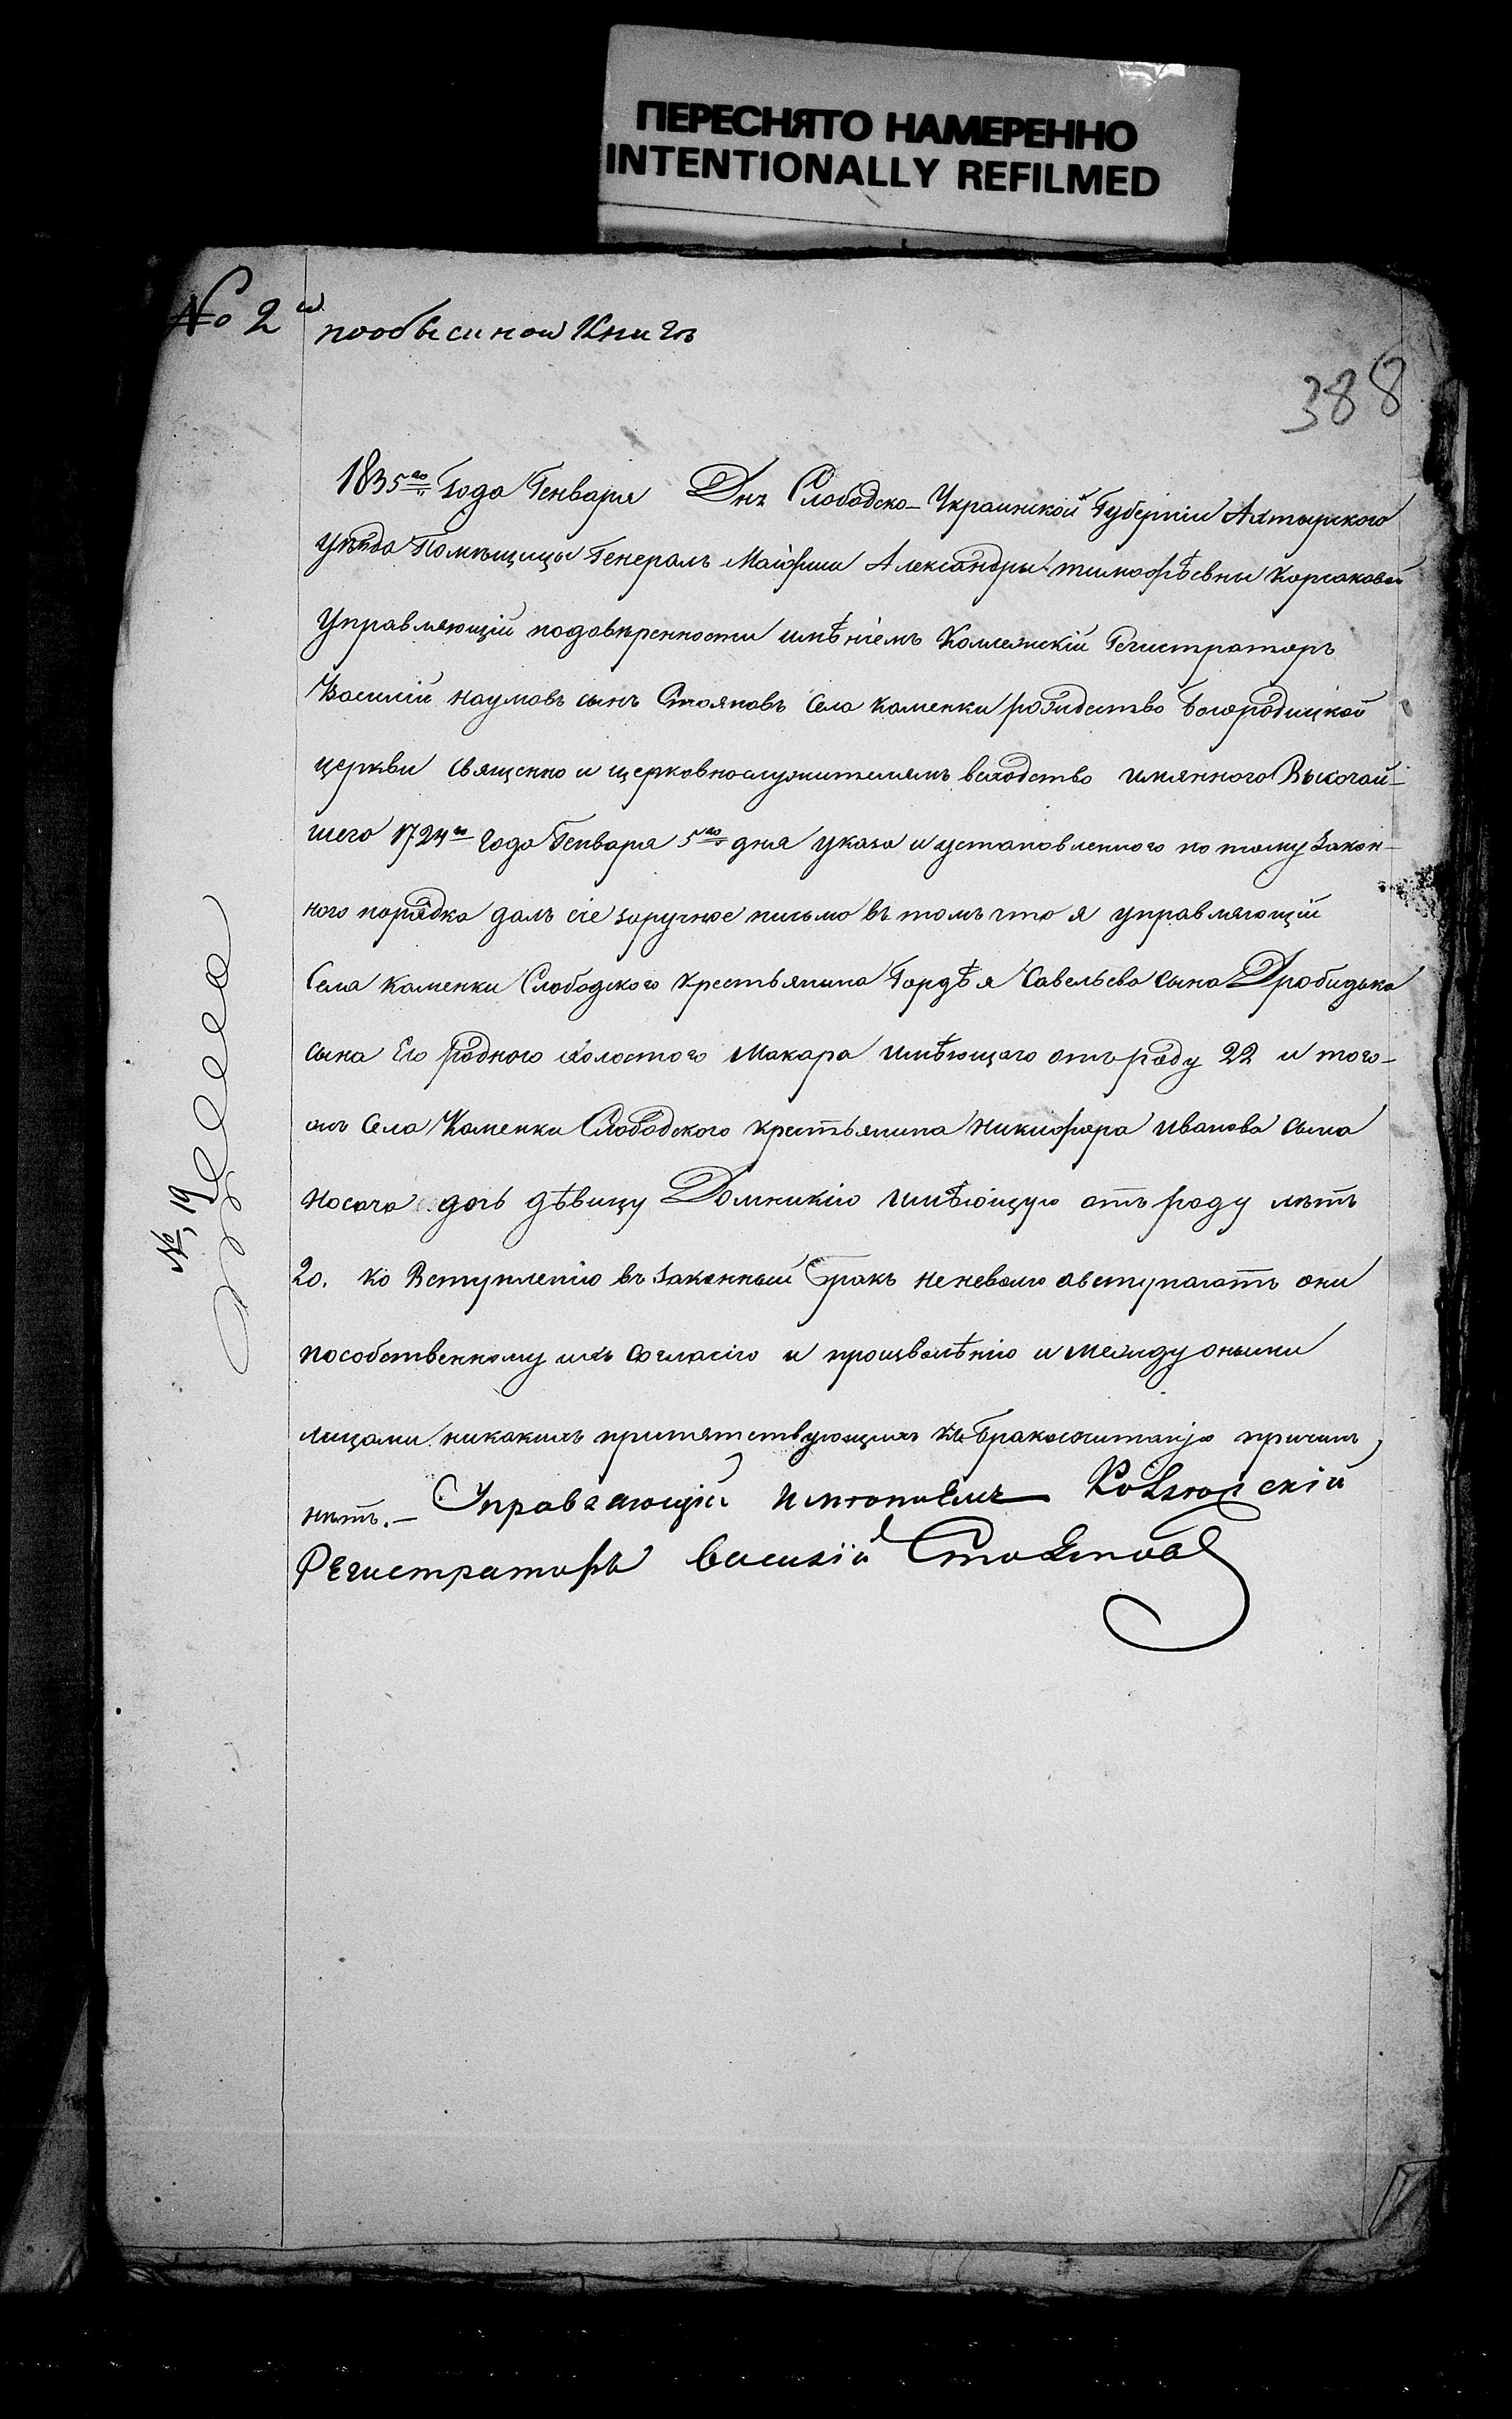 ПЕРЕСНЯТО НАМЕРЕННО
INTENTIONALLY REFILMED
№ 2й пообысиной Книгѣ
388
1835го Года Генваря Днъ Слободско-Украинской Губерніи Ахтырского
уѣзда Помѣщицы Генералъ Маіорши Александры тимофѣевны Корсаковой
Управляющій подовѣренности имѣніемъ Коллежскій Регистраторъ
Василій наумовъ сынъ Стояновъ села каменки рождество Богородицкой
церкви священно и церковнослужителямъ вслѣдство имянного Высочай-
шего 1724го Года Генваря 5го дня указа и установленного по тому закон-
ного порядка далъ сіе заручное письмо въ томъ что я управляющій
Села каменки Слободского крестьянина Гордѣя Савельева сына Дробидька
сына Его родного холостого Макара имѣющаго отъ роду 22 и того-
жъ Села Каменки Слободского крестьянина никифора иванова сына
носача дочь дѣвицу Домникію имѣющую отъ роду лѣтъ
20. ко Вступленію въ законный бракъ неневолю авступаютъ они
пособственному ихъ согласію и произволѣнію и между оными
лицами никакихъ припятствующихъ къ бракосочитанію причинъ
нѣтъ.- Управляющій имѣніемъ
Регистраторъ василій Стояновъ
№, 19